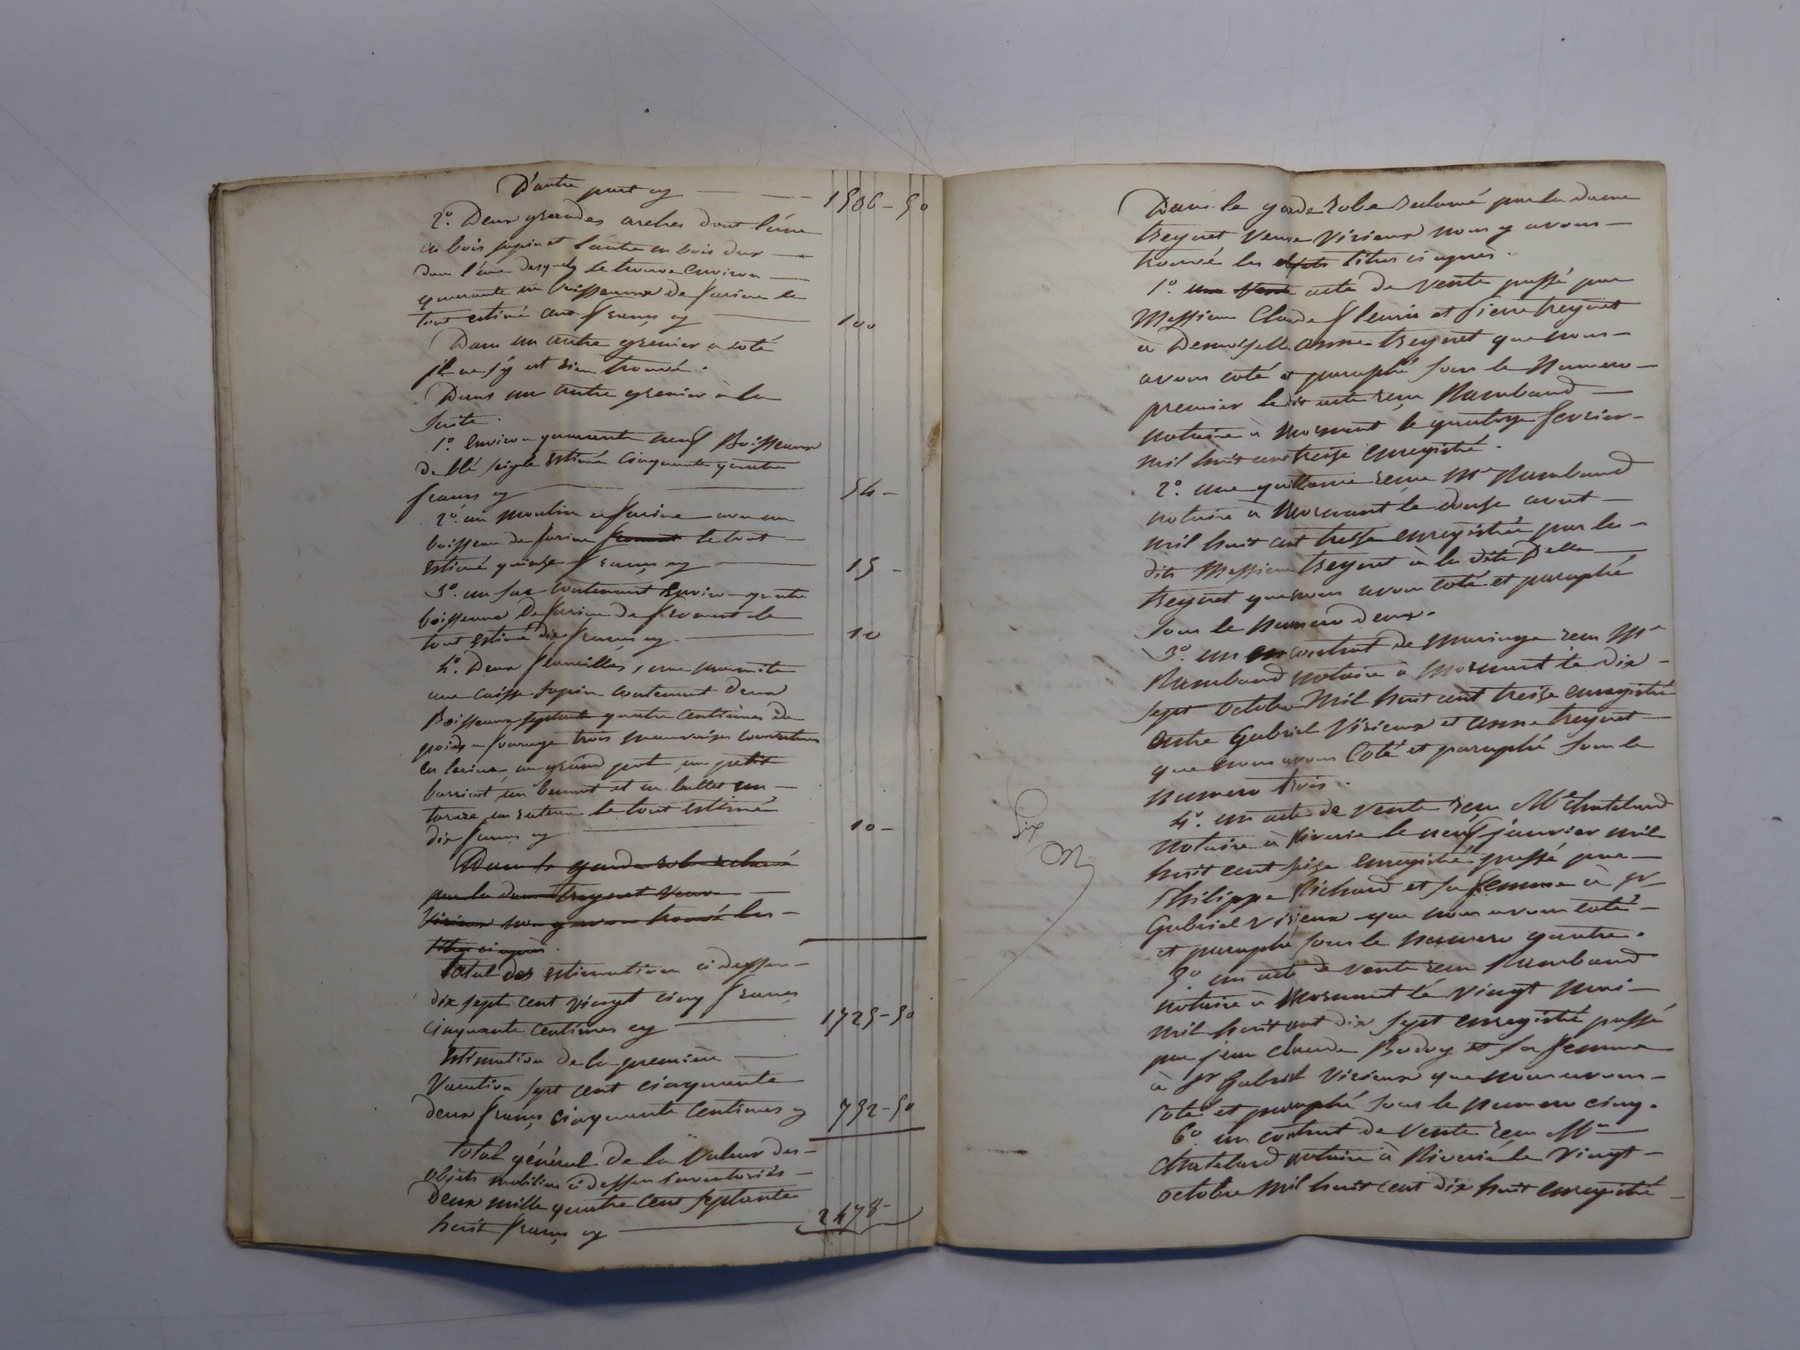 D'autre part cy 1506-50
2°. Deux grandes arches dont l'une
en bois sapin et l'autre en bois dur
dans l'une desquels se trouve Environ
quarante un Boisseaux de farine le
tout estimé cent francs cy 100
Dans un autre grenier a coté
il ne s'y est rien trouvé.
Dans un autre grenier à la
suite.
1°. environ quarante neuf Boisseaux
de blé seigle estimé cinquante quatre
francs cy 54-
2°. un moulin a farine avec un
boisseau de farine froment le tout
estimé quinze francs cy 15-
3°. un sac contenant Environ quatre
boisseaux de farine de froment le
tout estimé dix francs cy 10
4°. Deux une
une caisse sapin contenant deux
Boisseaux septante quatre centimes de
poids a fourage trois mauvaises couvertures
en laine, un grand pot, un petit
barriot, un bennot et un
le tout estimé
dix francs cy 10-
Dans le garde robe réclamé
par la dame treynet veuve
Virieux nous y avons trouvé les
titres ci après.
total des estimation ci dessus
dix sept cent vingt cinq francs
cinquante centimes cy 1725-50
Estimation de la première
Vacation sept cent cinquante
deux francs cinquante Centimes cy 752-50
total général de la Valeur des
objets mobiliers ci dessus inventoriés
deux mille quatre cent septante
huit francs cy 2478-
Dans le garde robe réclamé par la dame
treynet Veuve Virieux nous y avons
trouvé les objets titres ci après.
1°. une vente acte de vente passé par
Messieurs Claude fleurie et Pierre treynet
à Demoiselle anne treynet que nous
avons coté et paraphé sous le Numero
premier le dit acte reçu Rambaud
notaire à mornant le quatorze fevrier
mil huit cent treize enregistré.
2°. une quittance reçue Me Rambaud
notaire à Mornant le douze avout
mil huit cent treize enregistrée par les
dits Messieurs treynet à la dite Delle
treynet que nous avons coté et paraphé
sous le Numero deux.
3°. un contrat de mariage reçu Me
Rambaud notaire à mornant le dix
sept octobre Mil huit cent treize enregistré
entre Gabriel Virieux et anne treynet
que nous avons Coté et paraphé sous le
Numero trois.
4°. un acte de vente reçu Me Chatelard
notaire à Riverie le neuf janvier mil
huit cent seize enregistré passé par
Philippe Richard et sa femme à Sr
Gabriel Virieux que nous avons coté
et paraphé sous le numero quatre.
5°. un acte de vente reçu Rambaud
notaire à Mornant le vingt mai
mil huit cent dix sept enregistré passé
par jean claude Bodoy et sa femme
à Sr Gabriel Virieux que nous avons
Coté et paraphé sous le Numero cinq.
6°. un contrat de vente reçu Me
Chatelard notaire à Riverie le Vingt
octobre Mil huit cent dix huit enregistré
Six